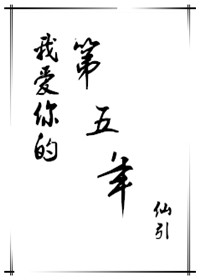 我爱你的
第五年
仙引